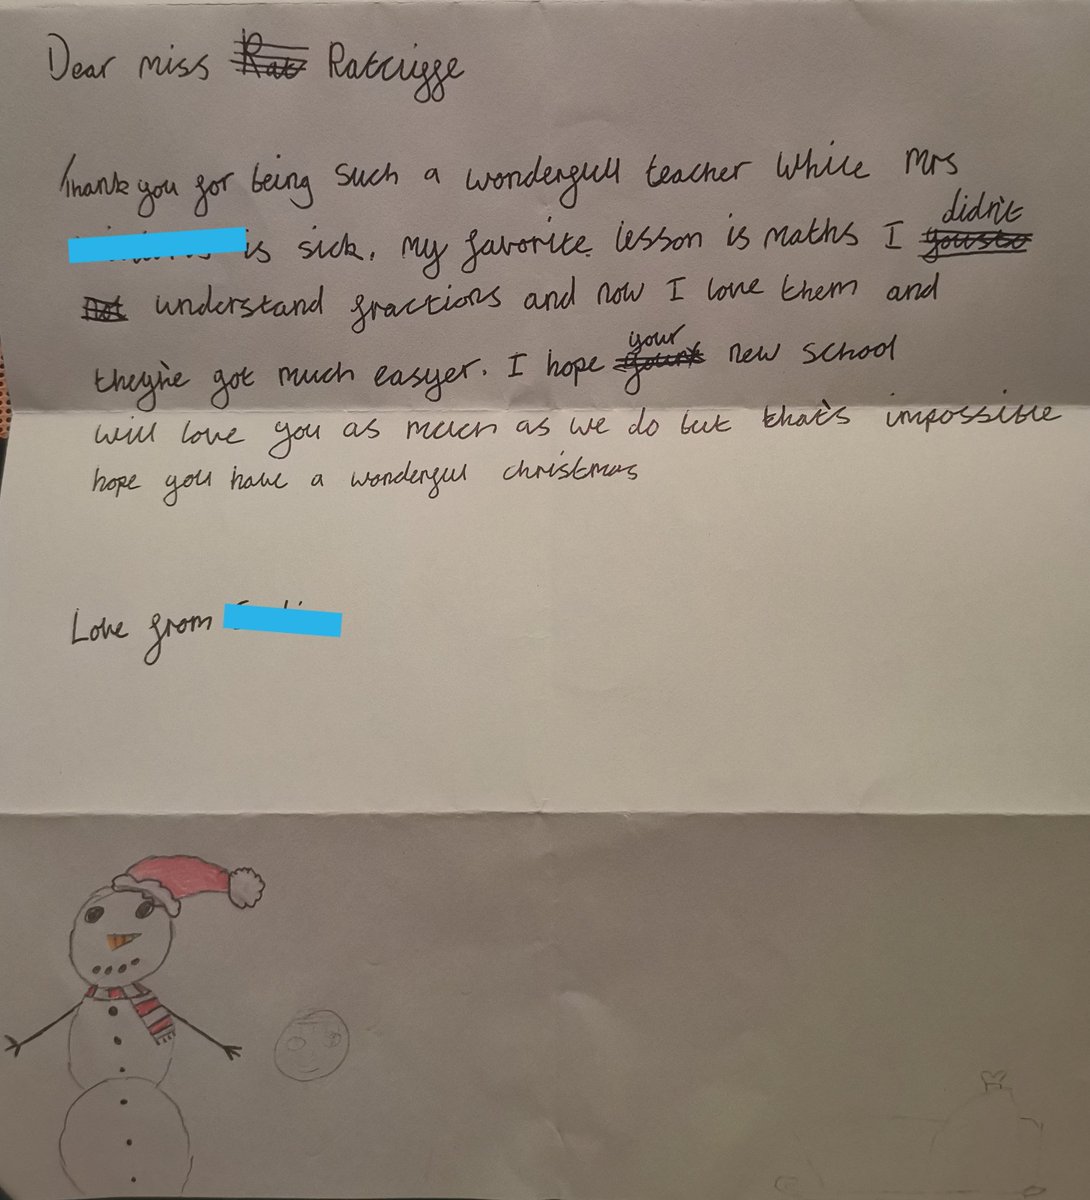 Dear miss Rat Ratcligge
Thank you for being such a wondergull teacher while mrs
is sick. my favorite lesson is maths I didn't
not understand fractions and now I love them and
they're got much easyer. I hope your new school
will love you as much as we do but that's impossible
hope you have a wonderful christmas
Love from